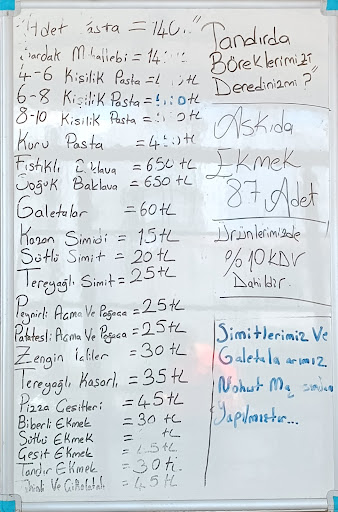 Adet Pasta = 140
Bardak Muhallebi = 14
4-6 Kişilik Pasta = TL
6-8 Kişilik Pasta = TL
8-10 Kişilik Pasta = TL
Kuru Pasta = TL
Fıstıklı Baklava = 650 TL
Soğuk Baklava = 650 TL
Galetalar = 60 TL
Kazan Simidi = 15 TL
Sütlü Simit = 20 TL
Tereyağlı Simit = 25 TL
Peynirli Açma Ve Poğaça = 25 TL
Patatesli Açma Ve Poğaça = 25 TL
Zengin İçliler = 30 TL
Tereyağlı Kaşarlı = 35 TL
Pizza Çeşitleri = 45 TL
Biberli Ekmek = 30 TL
Sütlü Ekmek = TL
Çeşit Ekmek = 45 TL
Tandır Ekmek = 30 TL
Ve Çikolatalı = 45 TL
Tandırda
Böreklerimizi
Denediniz mi?"
Askıda
Ekmek
87 Adet
Ürünlerimizde
%10 KDV
Dahildir.
Simitlerimiz Ve
Galetalarımız
Nohut Mayasından
Yapılmıştır...